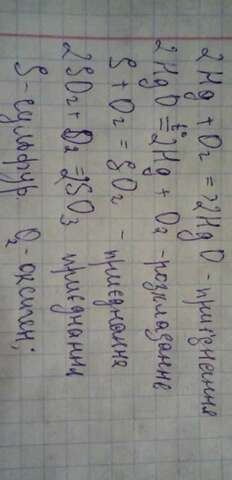 2Hg + O₂ = 2HgO - приєднання
2HgO t°= 2Hg + O₂ - розкладання
S + O₂ = SO₂ - приєднання
2SO₂ + O₂ = 2SO₃ приєднання
S - сульфур, O₂ - оксиген;